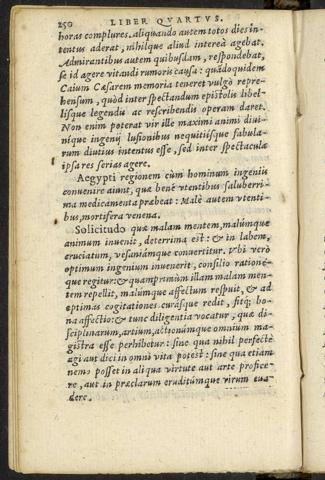 250 LIBER QVARTVS.
horas complures. aliquando autem totos dies in-
tentus aderat, nihilque aliud interea agebat.
Admirantibus autem quibusdam, respondebat,
se id agere vitandi rumoris causa: quãdoquidem
Caium Cæsarem memoria teneret vulgò repre-
hensum, quòd inter spectandum epistolis libel-
lisque legendis ac rescribendis operam daret.
Non enim poterat vir ille maximi animi diui-
nique ingenij lusionibus nequitiisque fabula-
rum diutius intentus esse, sed inter spectacula
ipsa res serias agere.
Aegypti regionem cùm hominum ingeniis
conuenire aiunt, quæ benè vtentibus saluberri-
ma medicamenta præbeat: Malè autem vtenti-
bus, mortifera venena.
Solicitudo quæ malam mentem, malúmque
animum inuenit, deterrima est: & in labem,
cruciatum, vesaniámque conuertitur. Vbi verò
optimum ingenium inuenerit, consilio rationé-
que regitur: & quamprimùm illam malam men-
tem repellit, malúmque affectum respuit, & ad
optimas cogitationes curásque redit, fitq; bo-
na affectio: & tunc diligentia vocatur, quæ di-
sciplinarum, artium, actionúmque omnium ma-
gistra esse perhibetur: sine qua nihil perfectè
agi aut dici in omni vita potest: sine qua etiam
nemo posset in aliqua virtute aut arte profice-
re, aut in præclarum eruditúmque virum eua-
dere.